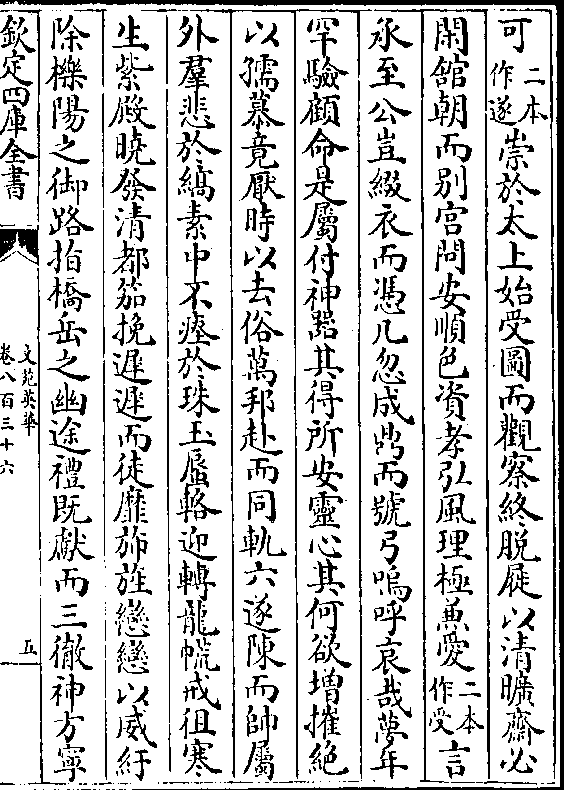 可二本作遂崇於太上始受圖而觀察終脫屣以清曠齋必
閑舘朝而别宫問安順色資孝弘風理極兼愛二本作受言
永至公豈綴衣而憑几忽成鼎而號弓嗚呼哀哉夢年
罕驗顧命是屬付神器其得所安靈心其何欲增摧絶
以孺慕竟厭時以去俗萬邦赴而同軌六遂陳而帥屬
外羣悲於縞素中不瘞於珠玉蜃輅迎轉龍㡆戒徂寒
生紫殿曉發清都笳挽遲遲而徒靡斾旌戀戀以威紆
除櫟陽之御路指橋岳之幽途禮既獻而三徹神方寧
欽定四庫全書
文苑英華
卷八百三十六
五